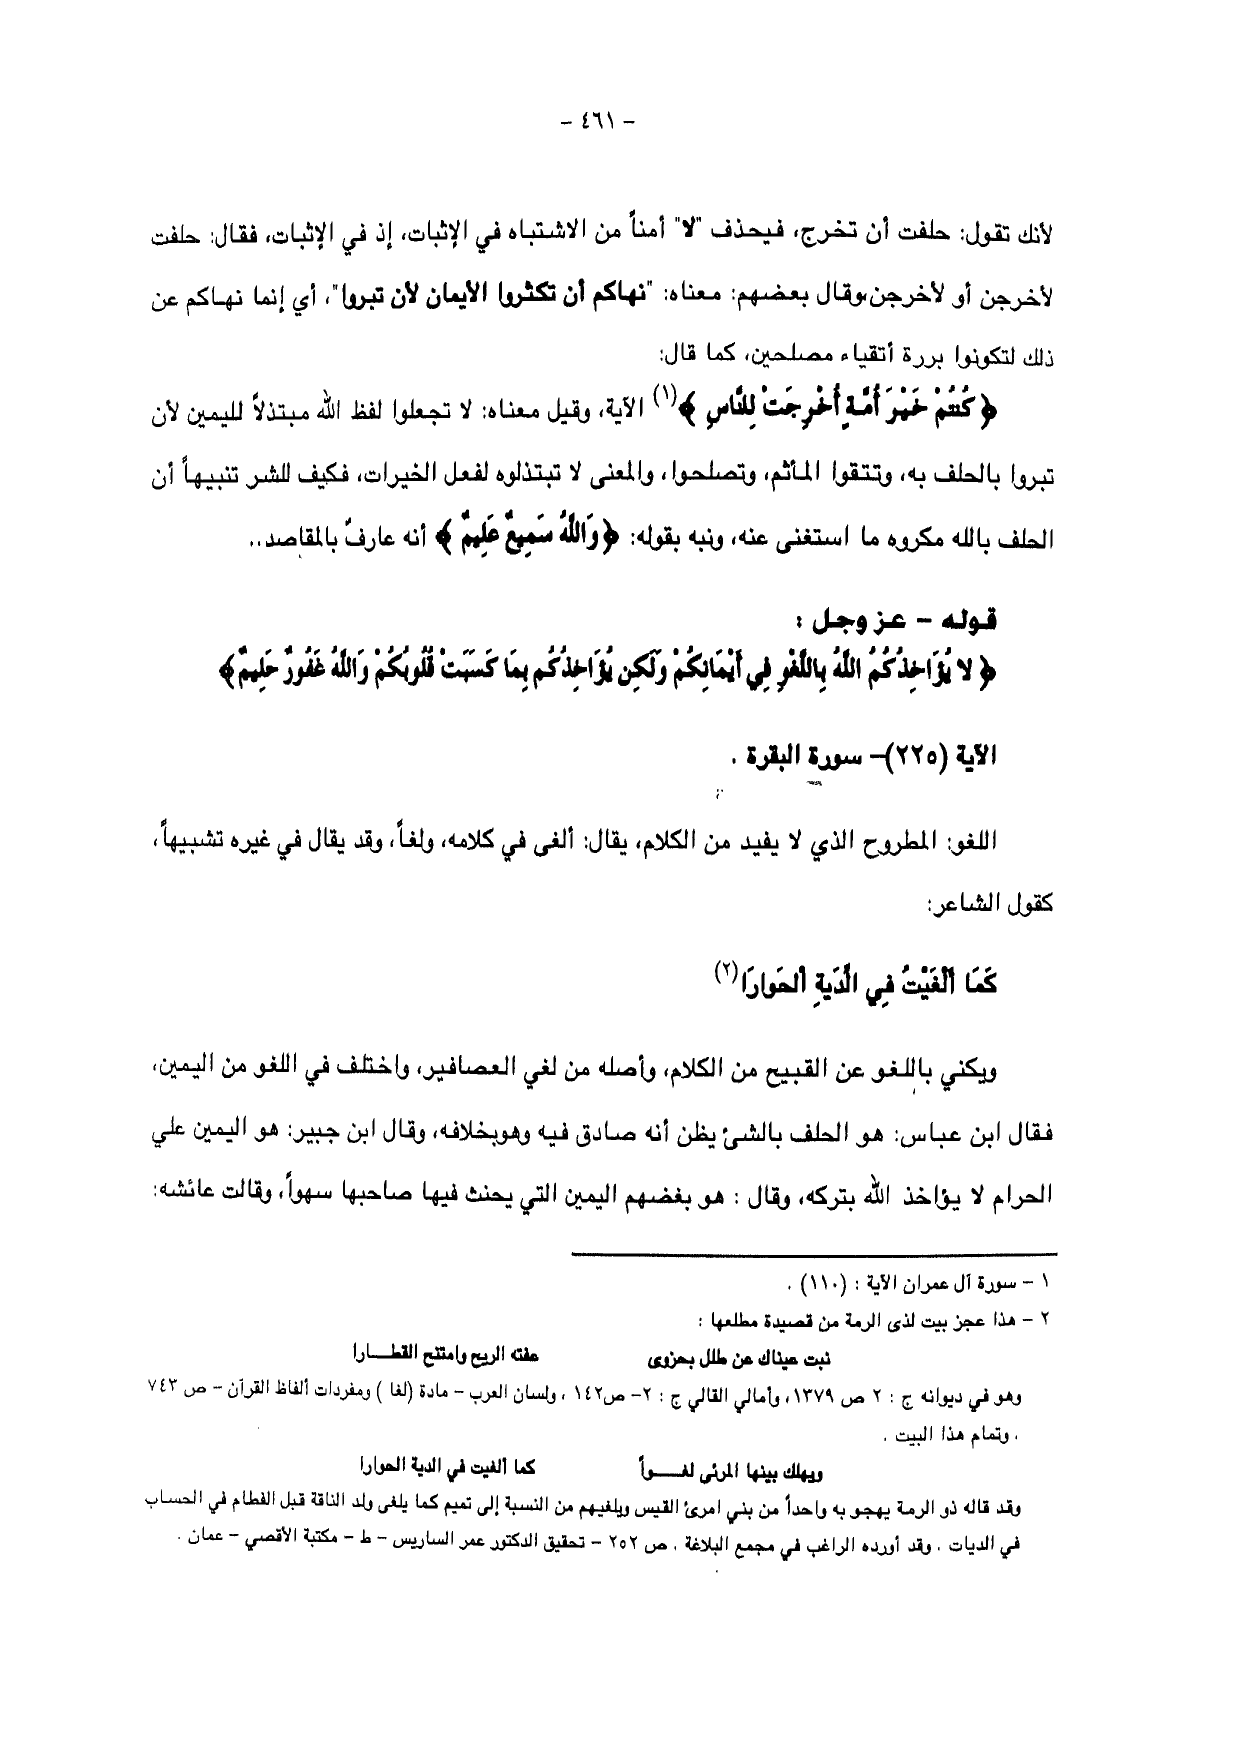 - ٤٦١ -
لأنك تقول: حلفت أن تخرج، فيحذف "لا" أمناً من الاشتباه في الإثبات، إذ في الإثبات، فقال: حلفت
لأخرجن أو لأخرجن،وقال بعضهم: معناه: "نهاكم أن تكثروا الأيمان لأن تبروا"، أي إنما نهاكم عن
ذلك لتكونوا بررة أتقياء مصلحين، كما قال:
﴿ كُنتُمْ خَيْرَ أُمَّةٍ أُخْرِجَتْ لِلنَّاسِ ﴾(١) الآية، وقيل معناه: لا تجعلوا لفظ الله مبتذلاً لليمين لأن
تبروا بالحلف به، وتتقوا المأثم، وتصلحوا، والمعنى لا تبتذلوه لفعل الخيرات، فكيف للشر تنبيهاً أن
الحلف بالله مكروه ما استغنى عنه، ونبه بقوله: ﴿ وَاللَّهُ سَمِيعٌ عَلِيمٌ ﴾ أنه عارفٌ بالمقاصد..
قوله - عز وجل :
﴿ لا يُؤَاخِذُكُمُ اللَّهُ بِاللَّغْوِ فِي أَيْمَانِكُمْ وَلَكِن يُؤَاخِذُكُم بِمَا كَسَبَتْ قُلُوبُكُمْ وَاللَّهُ غَفُورٌ حَلِيمٌ﴾
الآية (٢٢٥)- سورة البقرة .
اللغو: المطروح الذي لا يفيد من الكلام، يقال: ألغى في كلامه، ولغاً، وقد يقال في غيره تشبيهاً،
كقول الشاعر:
كَمَا ألْغَيْتُ فِي الَّدَيةِ ألحَوارَا(٢)
ويكني باللغو عن القبيح من الكلام، وأصله من لغي العصافير، واختلف في اللغو من اليمين،
فقال ابن عباس: هو الحلف بالشئ يظن أنه صادق فيه وهوبخلافه، وقال ابن جبير: هو اليمين علي
الحرام لا يؤاخذ الله بتركه، وقال : هو بغضهم اليمين التي يحنث فيها صاحبها سهواً، وقالت عائشه:
١ - سورة آل عمران الآية : (١١٠) .
٢ - هذا عجز بيت لذى الرمة من قصيدة مطلعها :
نبت عيناك عن طلل بحزوى عفته الريح وامتنح القطـــارا
وهو في ديوانه ج : ٢ ص ١٣٧٩، وأمالي القالي ج : ٢- ص١٤٢ ، ولسان العرب - مادة (لغا ) ومفردات ألفاظ القرآن - ص ٧٤٣
. وتمام هذا البيت .
ويهلك بينها المرئى لغـــواً كما ألغيت في الدية الحوارا
وقد قاله ذو الرمة يهجو به واحداً من بني امرئ القيس ويلغيهم من النسبة إلى تميم كما يلغى ولد الناقة قبل الفطام في الحساب
في الديات . وقد أورده الراغب في مجمع البلاغة . ص ٢٥٢ - تحقيق الدكتور عمر الساريس - ط - مكتبة الأقصي - عمان .